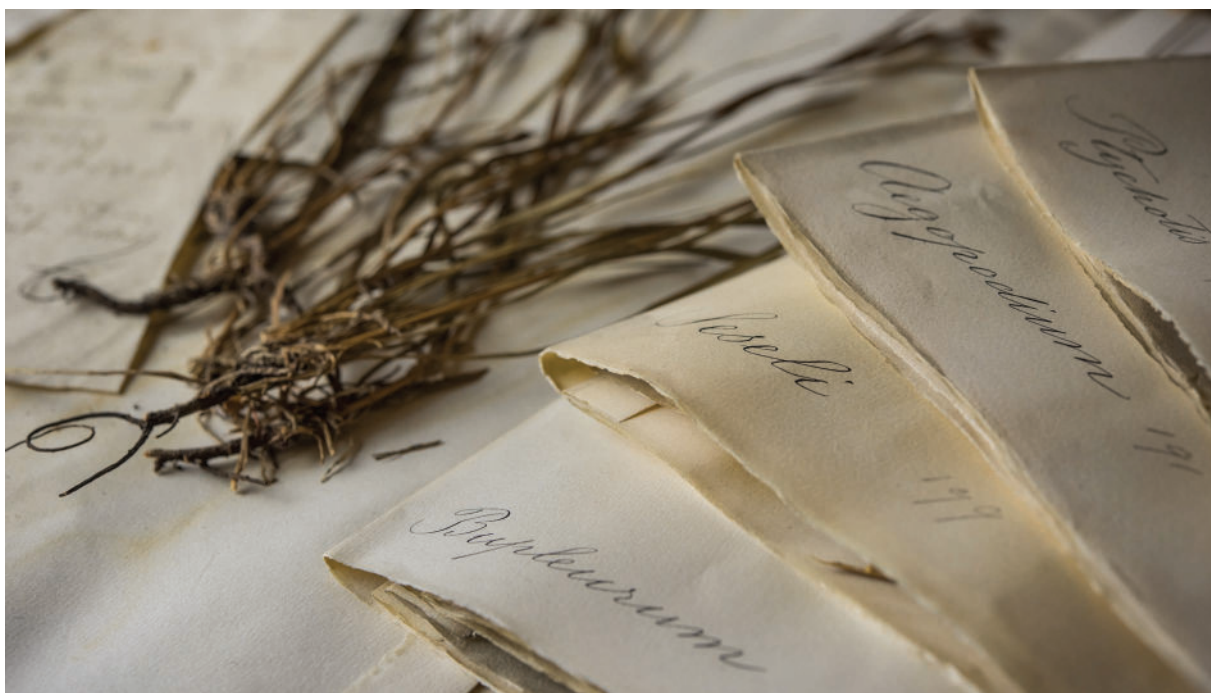 Ptychotis
Aegopodium
191
Seseli
179
Bupleurum